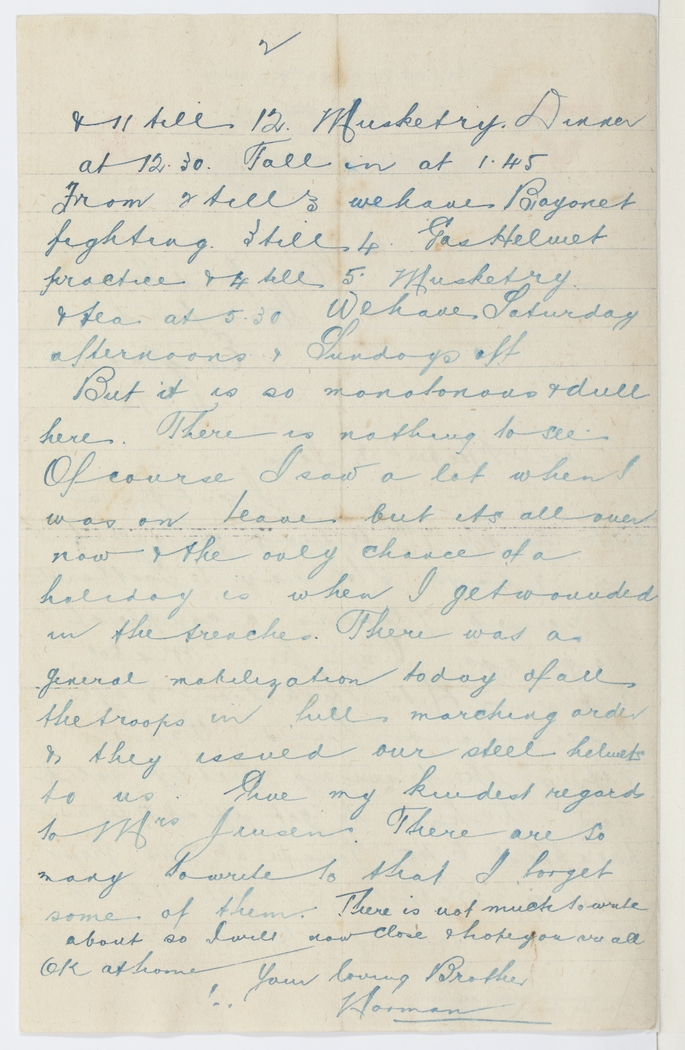 2
& 11 till 12. Musketry. Dinner
at 12.30. Fall in at 1.45
From 2 till 3 we have Bayonet
fighting. 3 till 4 Gas Helmet
practice & 4 till 5. Musketry.
& tea at 5.30 We have Saturday
afternoons & Sundays off
But it is so monotonous & dull
here. There is nothing to see.
Of course I saw a lot when I
was on leave but its all over
now & the only chance of a
holiday is when I get wounded
in the trenches. There was a
general mobilization today of all
the troops in full marching order
& they issued our steel helmets
to us. Give my kindest regards
to Mrs Jensen. There are so
many to write to that I forget
some of them. There is not much to write
about so I will now close & hope you are all
OK at home
Your loving Brother
Norman